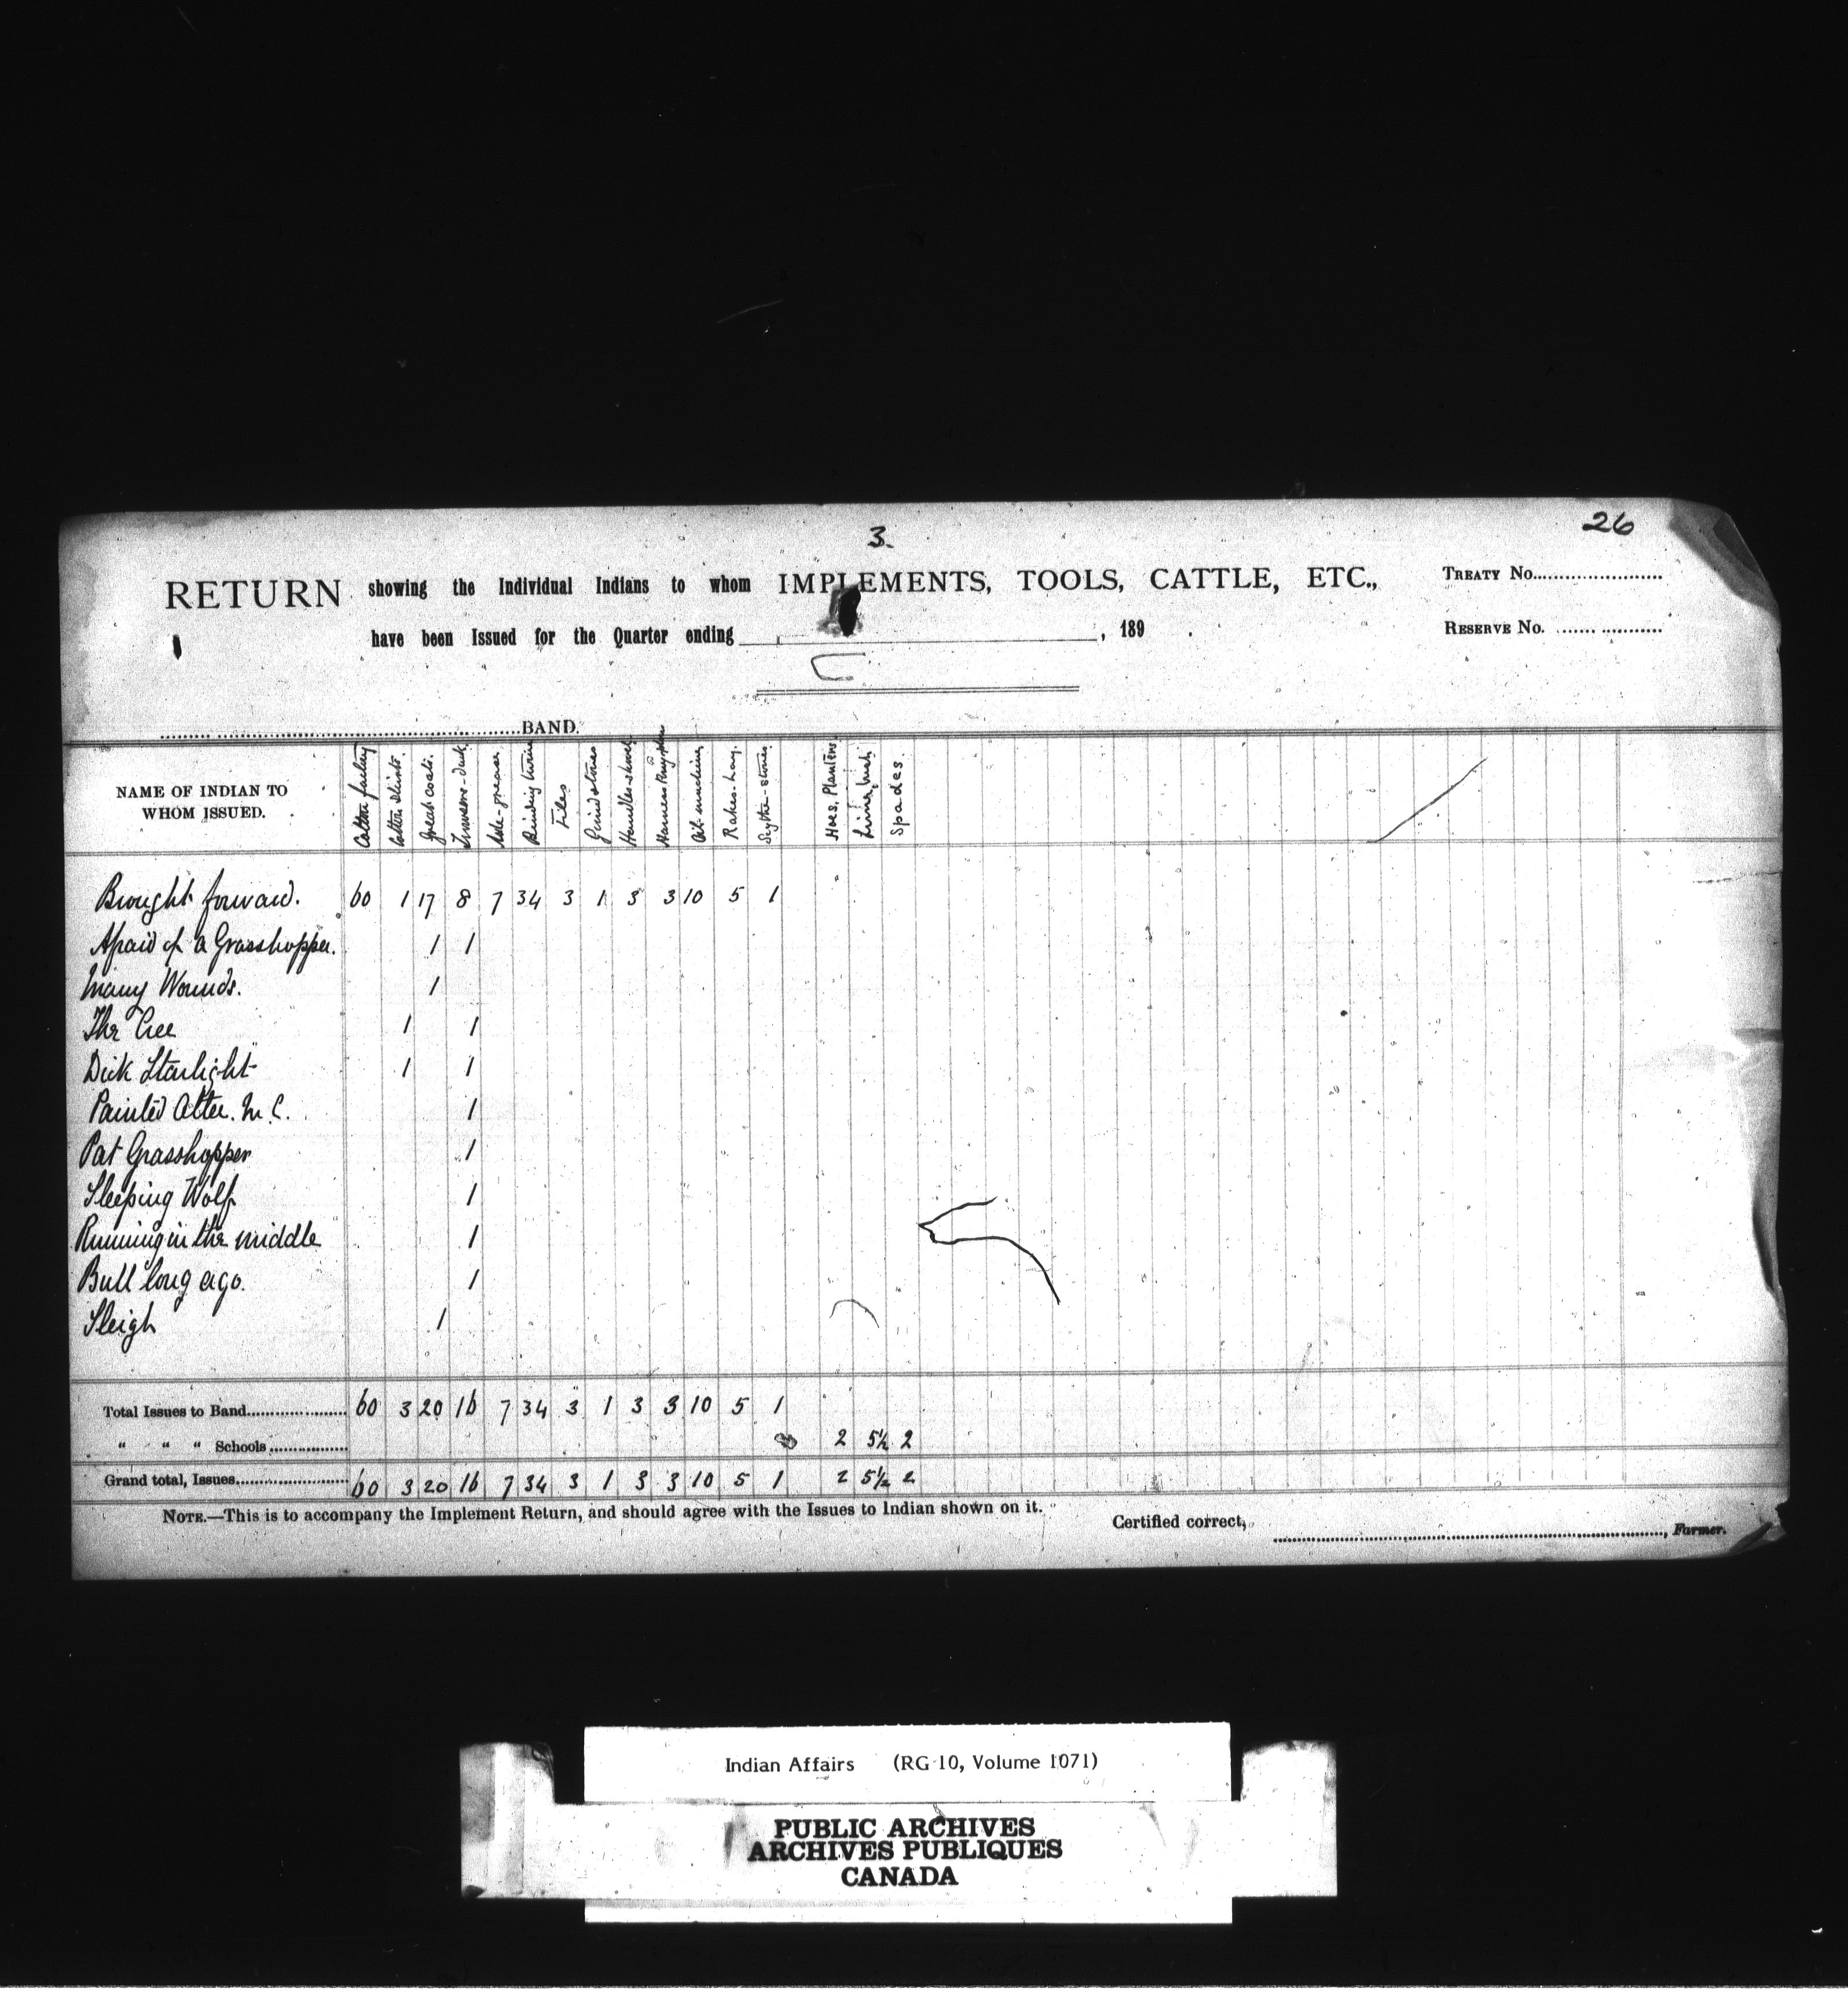 26
3.
RETURN showing the Individual Indians to whom IMPLEMENTS, TOOLS, CATTLE, ETC., TREATY No.
have been Issued for the Quarter ending , 189 RESERVE No.
BAND.
NAME OF INDIAN TO WHOM ISSUED. Cotton factory Cotton shirts. Great coats. Trousers-duck Axle-grease Binding twine Files Grindstones Handles-shovel Harness Oil-machine Rakes-hay. Scythe-stones Hoes, Planters. Spades.
Brought forward. 60 1 17 8 7 34 3 1 3 3 10 5 1
Afraid of a Grasshopper. 1 1
Many Wounds. 1
The Cree 1 1
Dick Starlight 1 1
Painted Otter. M.C. 1
Pat Grasshopper 1
Sleeping Wolf 1
Running in the middle 1
Bull long ago. 1
Sleigh 1
Total Issues to Band 60 3 20 16 7 34 3 1 3 3 10 5 1
" " " Schools 2 5½ 2
Grand total, Issues 60 3 20 16 7 34 3 1 3 3 10 5 1 2 5½ 2
NOTE.—This is to accompany the Implement Return, and should agree with the Issues to Indian shown on it.
Certified correct, , Farmer.
Indian Affairs (RG 10, Volume 1071)
PUBLIC ARCHIVES
ARCHIVES PUBLIQUES
CANADA